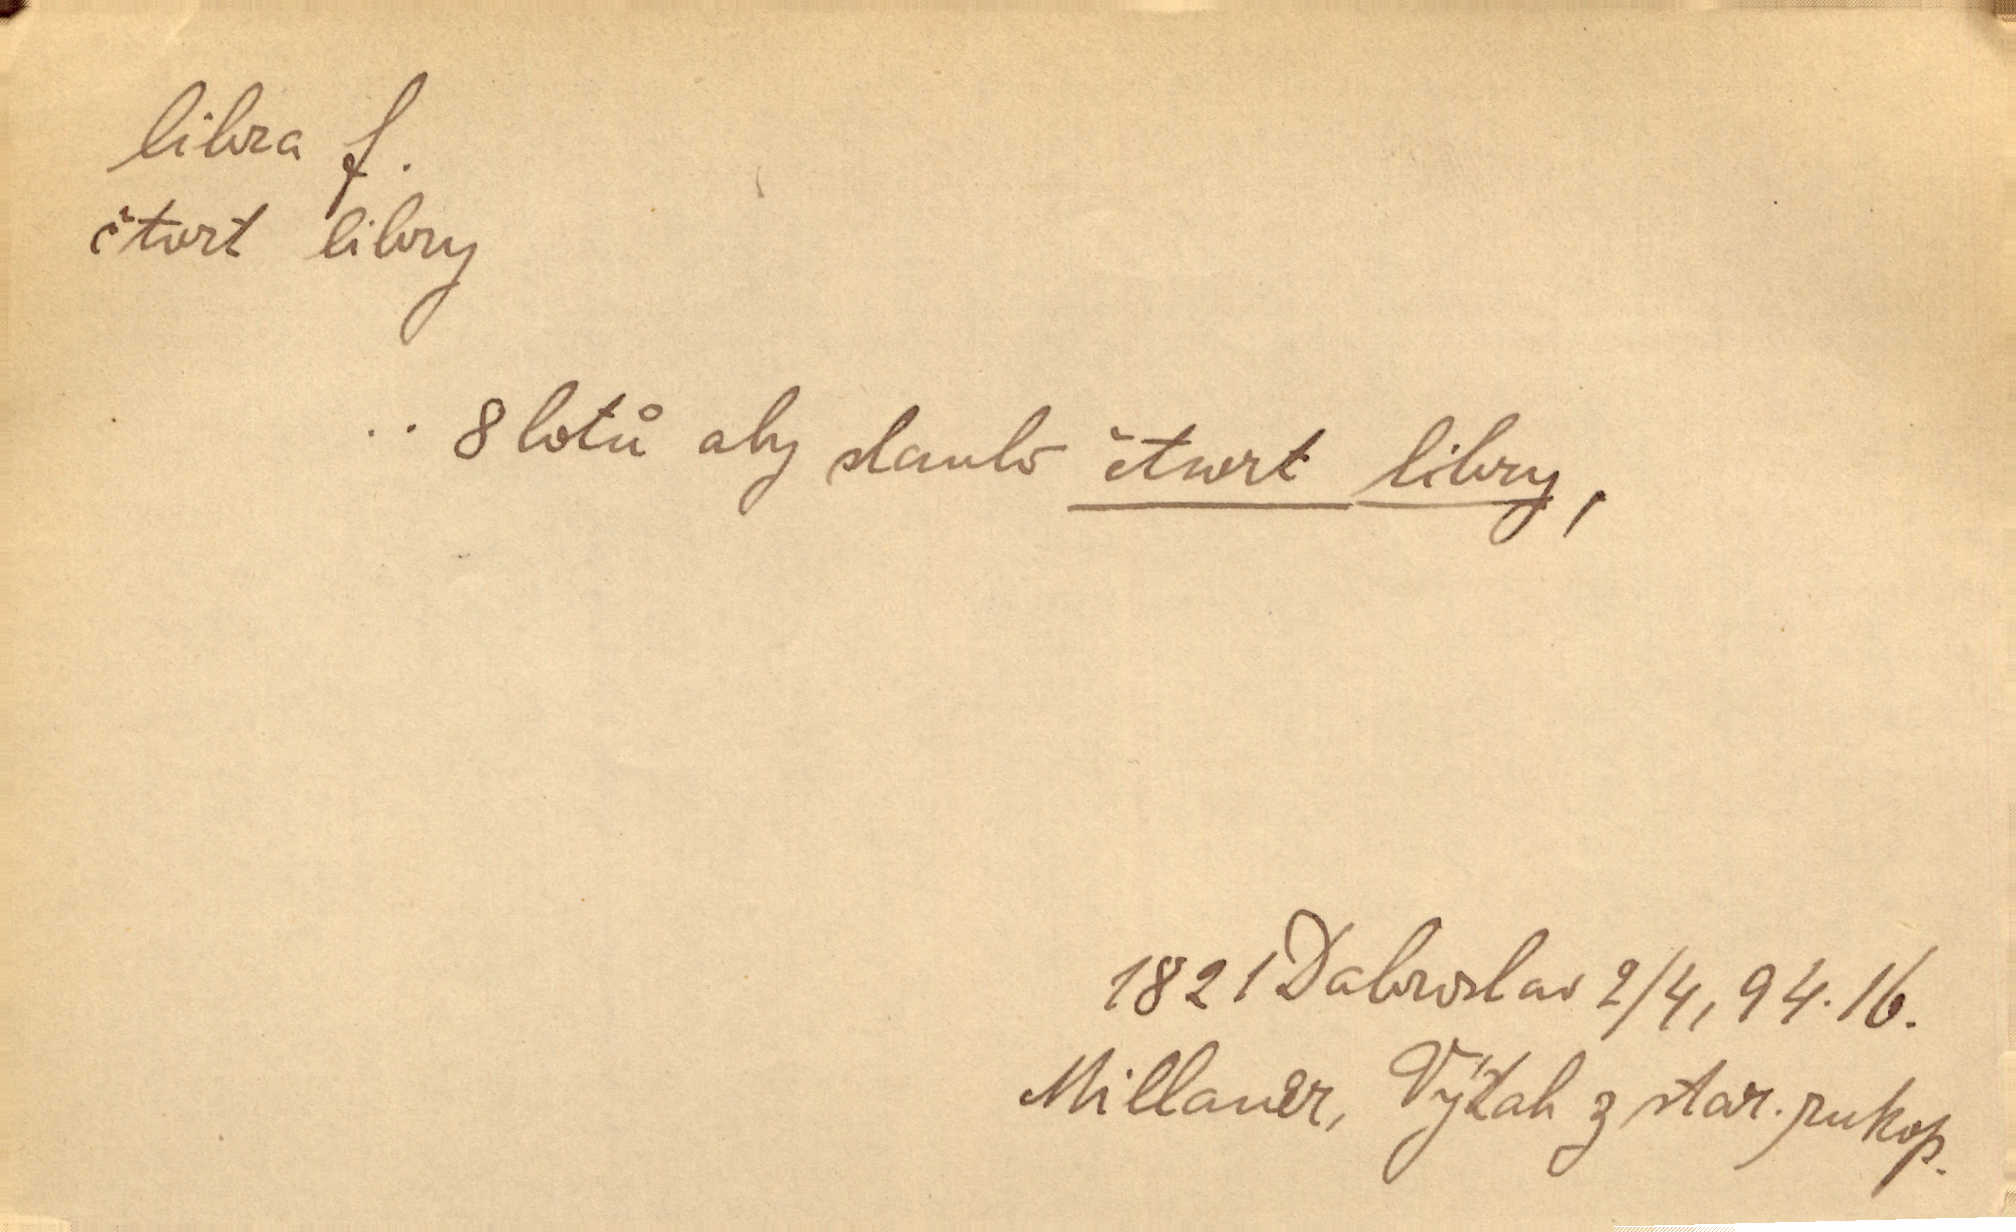 libra f.
čtvrt libry
.. 8 lotů aby slaulo čtwrt libry,
1821 Dabroslav 2/4, 94. 16.
Millauer, Výtah z star. rukop.